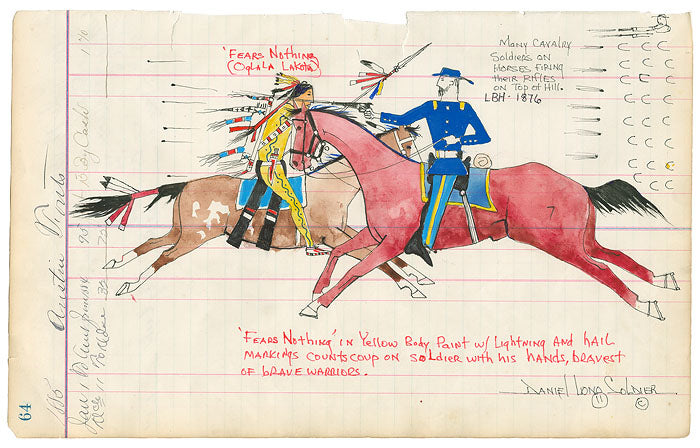 'Fears Nothing
(Oglala Lakota)
Many Cavalry
Soldiers on
Horses firing
their Rifles
on Top of Hill.
LBH · 1876
7
'Fears Nothing' in Yellow Body Paint w/ Lightning and hail
markings counts coup on soldier with his hands, bravest
of brave warriors.
Daniel Long Soldier
11 ©
64
Austin